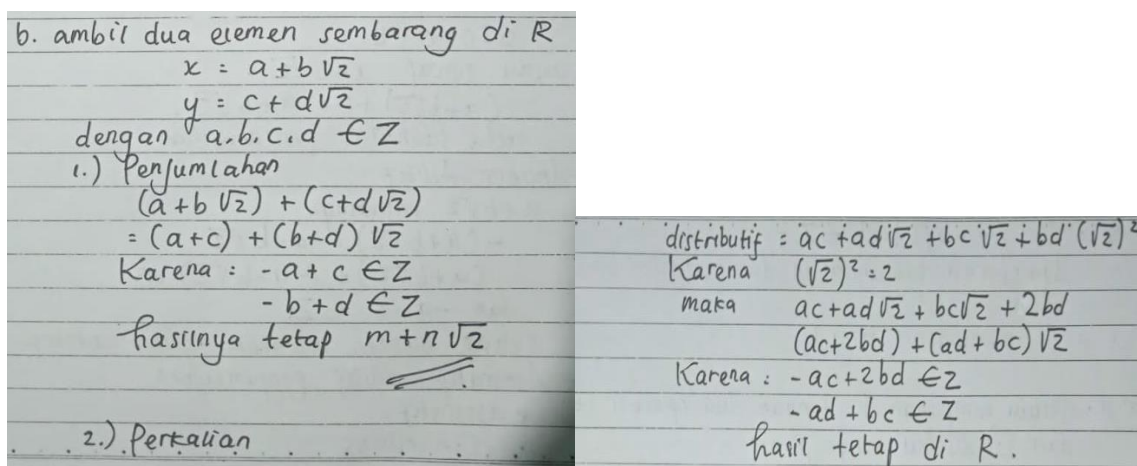 b. ambil dua elemen sembarang di R
x = a + b √2
y = c + d√2
dengan a.b.c.d ∈ Z
1.) Penjumlahan
(a + b √2) + (c+d √2)
= (a+c) + (b+d) √2
Karena : - a + c ∈ Z
- b + d ∈ Z
hasilnya tetap m + n √2
2.) Perkalian
distributif = ac + ad √2 + bc √2 + bd (√2)²
Karena (√2)² = 2
maka ac + ad √2 + bc√2 + 2bd
(ac+2bd) + (ad + bc) √2
Karena : - ac + 2bd ∈ Z
- ad + bc ∈ Z
hasil tetap di R.